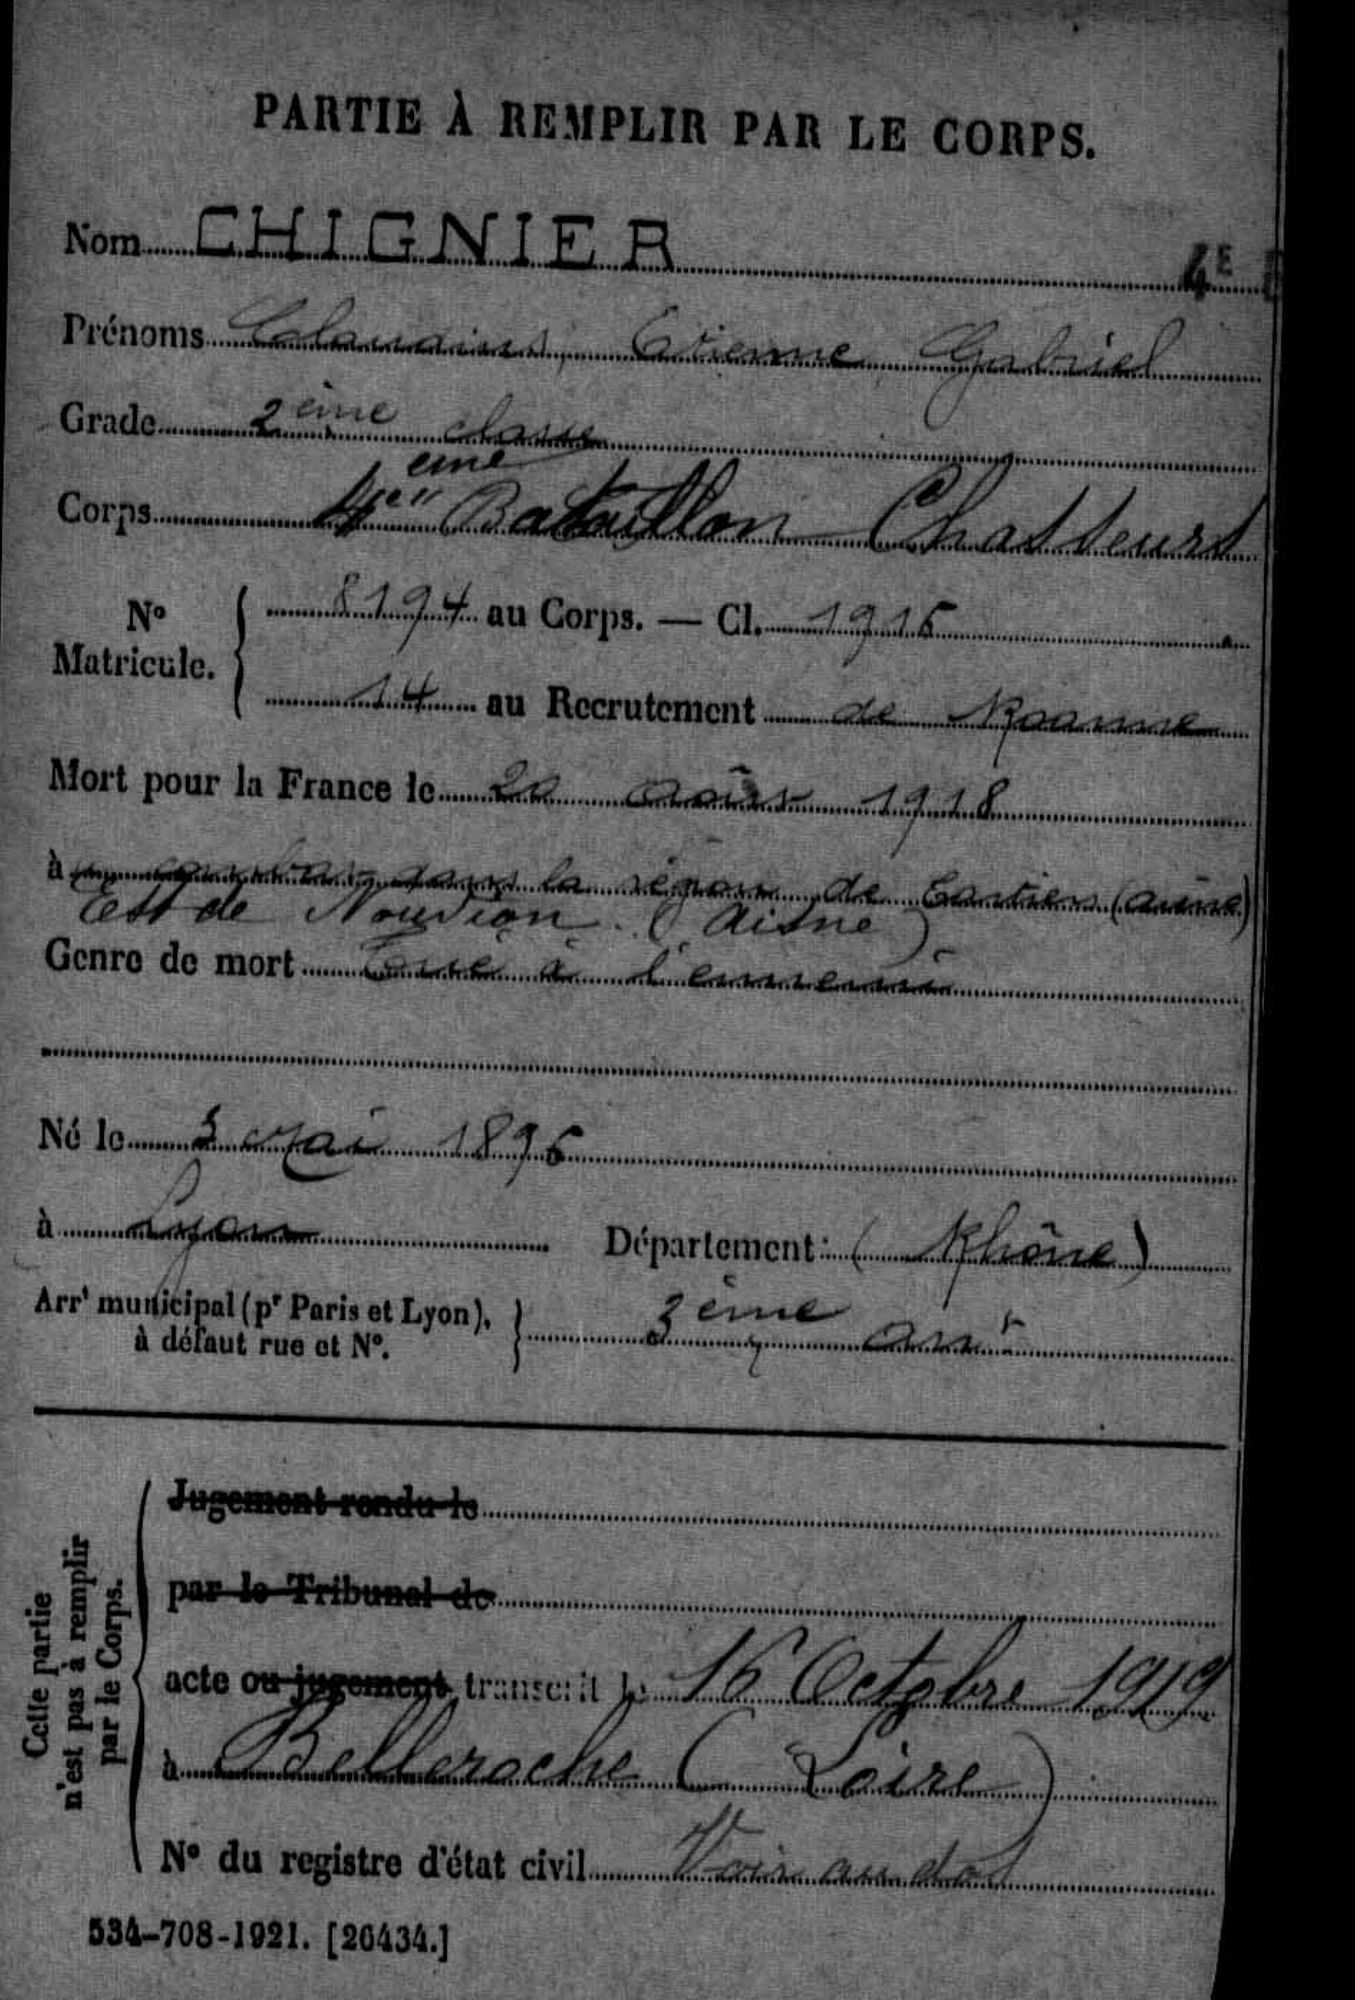 PARTIE À REMPLIR PAR LE CORPS.
Nom CHIGNIER
4E
Prénoms Claudius, Etienne, Gabriel
Grade 2ème classe
ème
Corps 4e Bataillon Chasseurs
No Matricule. 8194 au Corps. — Cl. 1916
14 au Recrutement de Roanne
Mort pour la France le 20 Août 1918
à au combat dans la région de (Aisne)
Est de Nouvion (Aisne)
Genre de mort Tué à l'ennemi
Né le 3 Mai 1896
à Lyon Département: (Rhône)
Arrt municipal (pr Paris et Lyon), à défaut rue et No. 3ème arrt
Cette partie n'est pas à remplir par le Corps.
Jugement rendu le
par le Tribunal de
acte ou jugement transcrit le 16 Octobre 1919
à Belleroche (Loire)
No du registre d'état civil Voir au dos
534-708-1921. [26434.]